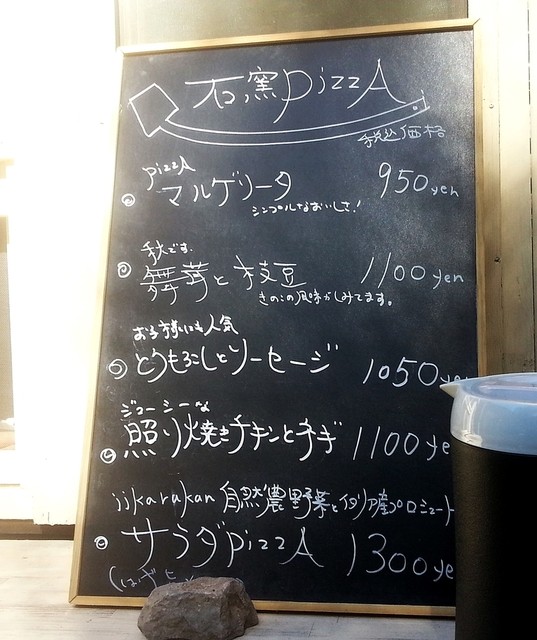 石窯pizzA
税込価格
pizzA
マルゲリータ 950yen
シンプルなおいしさ!
秋です。
舞茸と枝豆 1100yen
きのこの風味がしみてます。
お子様にも人気
とうもろこしとソーセージ 1050ye
ジューシーな
照り焼きチキンとネギ 1100ye
iikarakan 自然農野菜とイタリア産プロシュート
サラダpizzA 1300ye